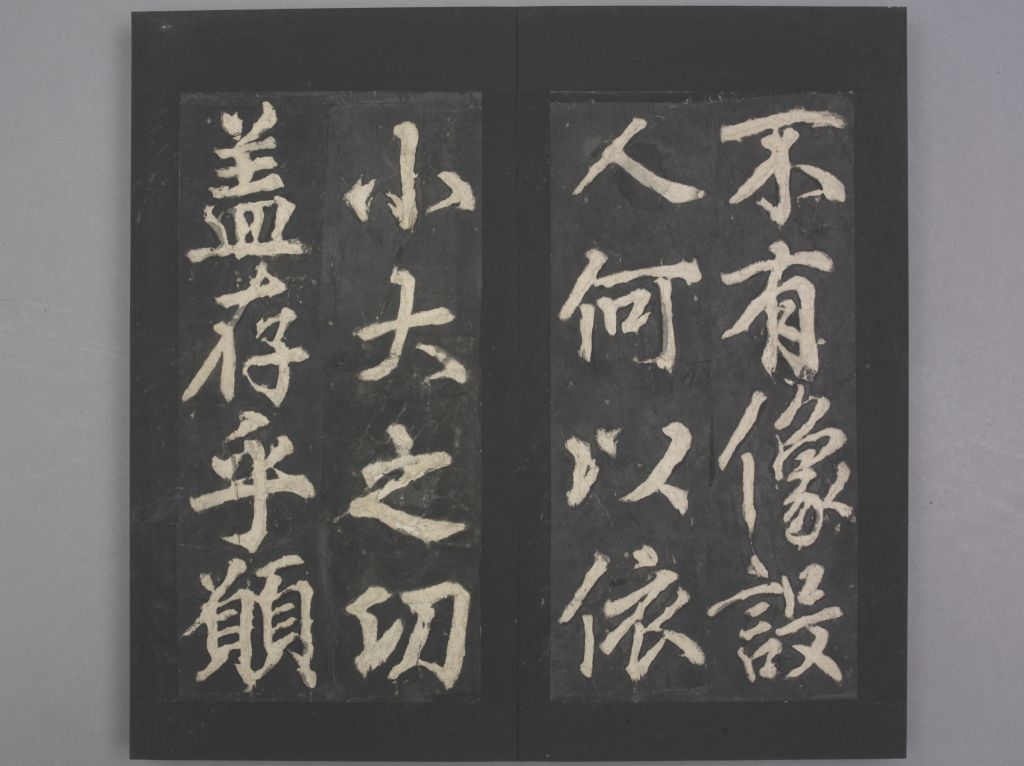 不有像設
人何以依
小大之切
盖存乎願